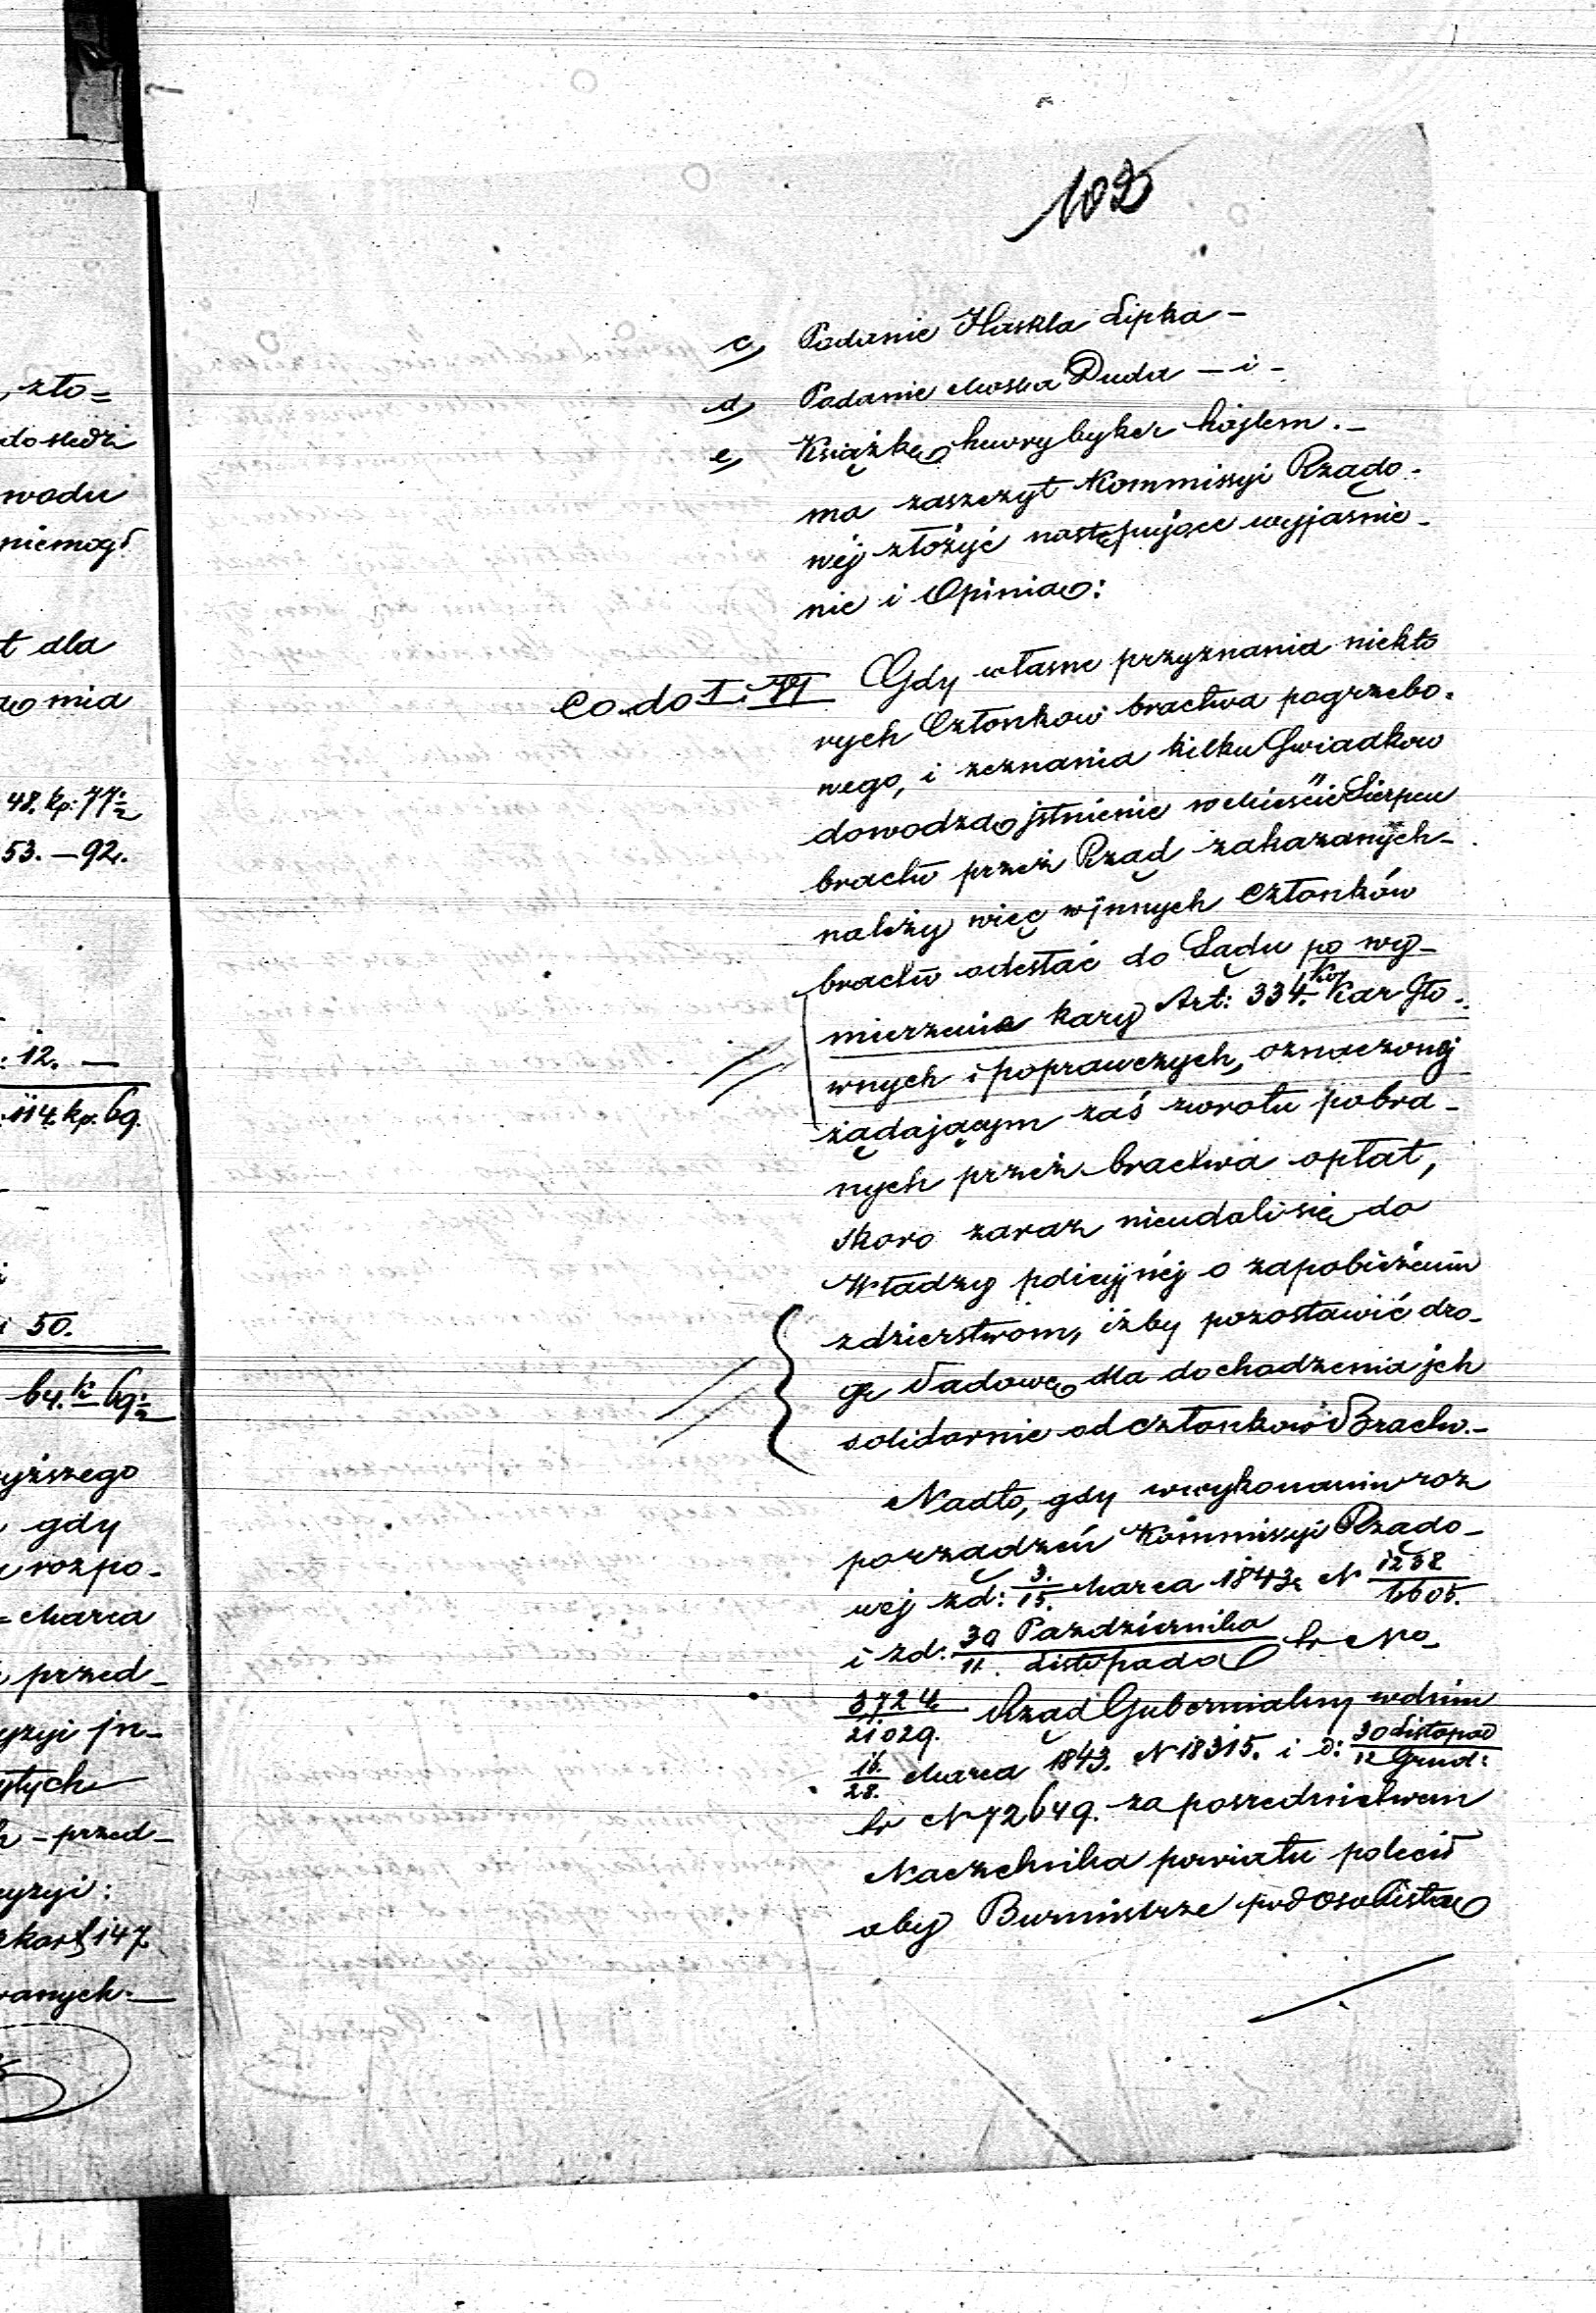 102
c, Podanie Haskla Lipka —
d, Podanie Moska Duda — i —
e, Książkę hewry byker hojlem. —
ma zaszczyt Kommissyi Rządo-
wéj złożyć następujące wyjaśnie-
nie i Opinią:
Co do I i VI Gdy własne przyznania niektó
rych Członkow bractwa pogrzebo-
wego, i zeznania kilku Swiadkow
dowodzą jstnienie w Mieście Sierpcu
bractw przez Rząd zakazanych —
należy więc wjnnych Członków
bractw odesłać do Sądu po wy-
mierzenie kary Art: 334. Ko Kar Głó-
wnych i poprawczych, oznaczonej
żądającym zaś zwrotu pobra-
nych przez bractwa opłat,
skoro zaraz nieudali się do
Władzy policyjnéj o zapobieżenie
zdzierstwom, iżby pozostawić dro-
gę Sądową dla dochodzenia jch
solidarnie od członków Bractw. —
Nadto, gdy w wykonaniu roz
porządzeń Kommissyi Rządo-
wej z d: 3./15. Marca 1843 r. N 1238/6605.
i z d: 30 Pazdziernika/11. Listopada t. r. No
3724/21029. Rząd Gubernialny w dniu
16./28. Marca 1843. N 18315. i d: 30 Listopad/12 Grud:
t. r. N 72649. za posrednictwem
Naczelnika powiatu polecił
aby Burmistrze pod osobistą
złó=
do sledzi
wodu
niemogł
t dla
mia
48. kp: 77½
53. — 92.
: 12. —
114 kp. 69.
50.
64. k 69½
yższego
gdy
rozpo-
Marca
przed-
yzyi jn-
ytych
— przed-
cyzyi:
147
wanych. —